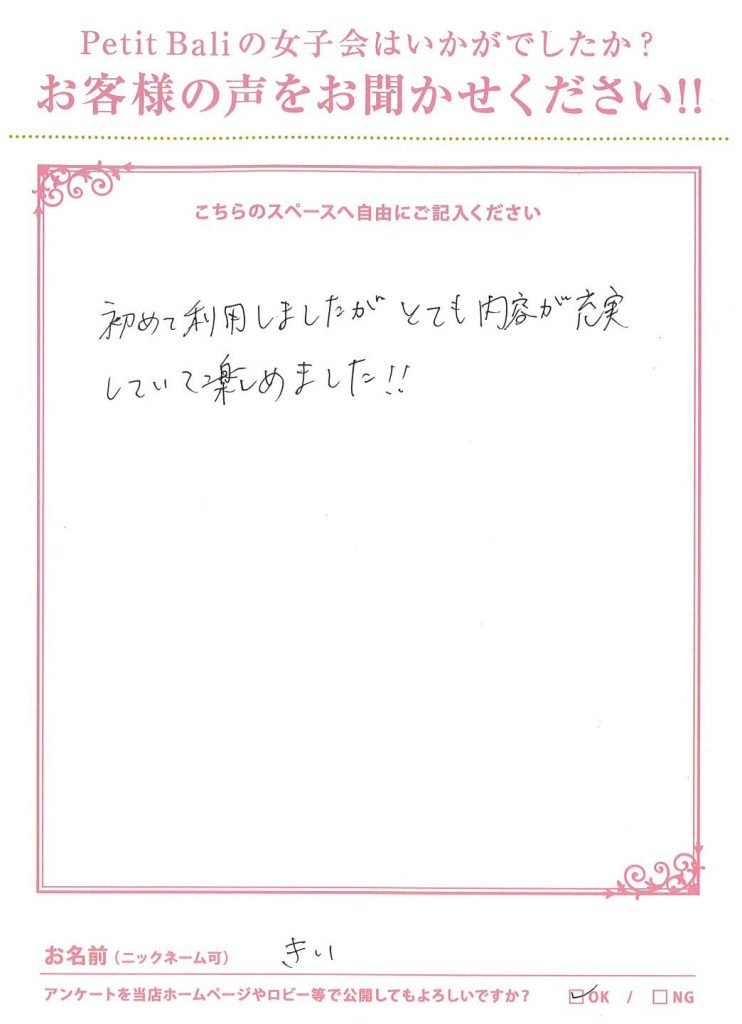 Petit Baliの女子会はいかがでしたか？
お客様の声をお聞かせください!!
こちらのスペースへ自由にご記入ください
初めて利用しましたが とても内容が充実
していて楽しめました!!
お名前（ニックネーム可） きい
アンケートを当店ホームページやロビー等で公開してもよろしいですか？ ☑OK / □NG